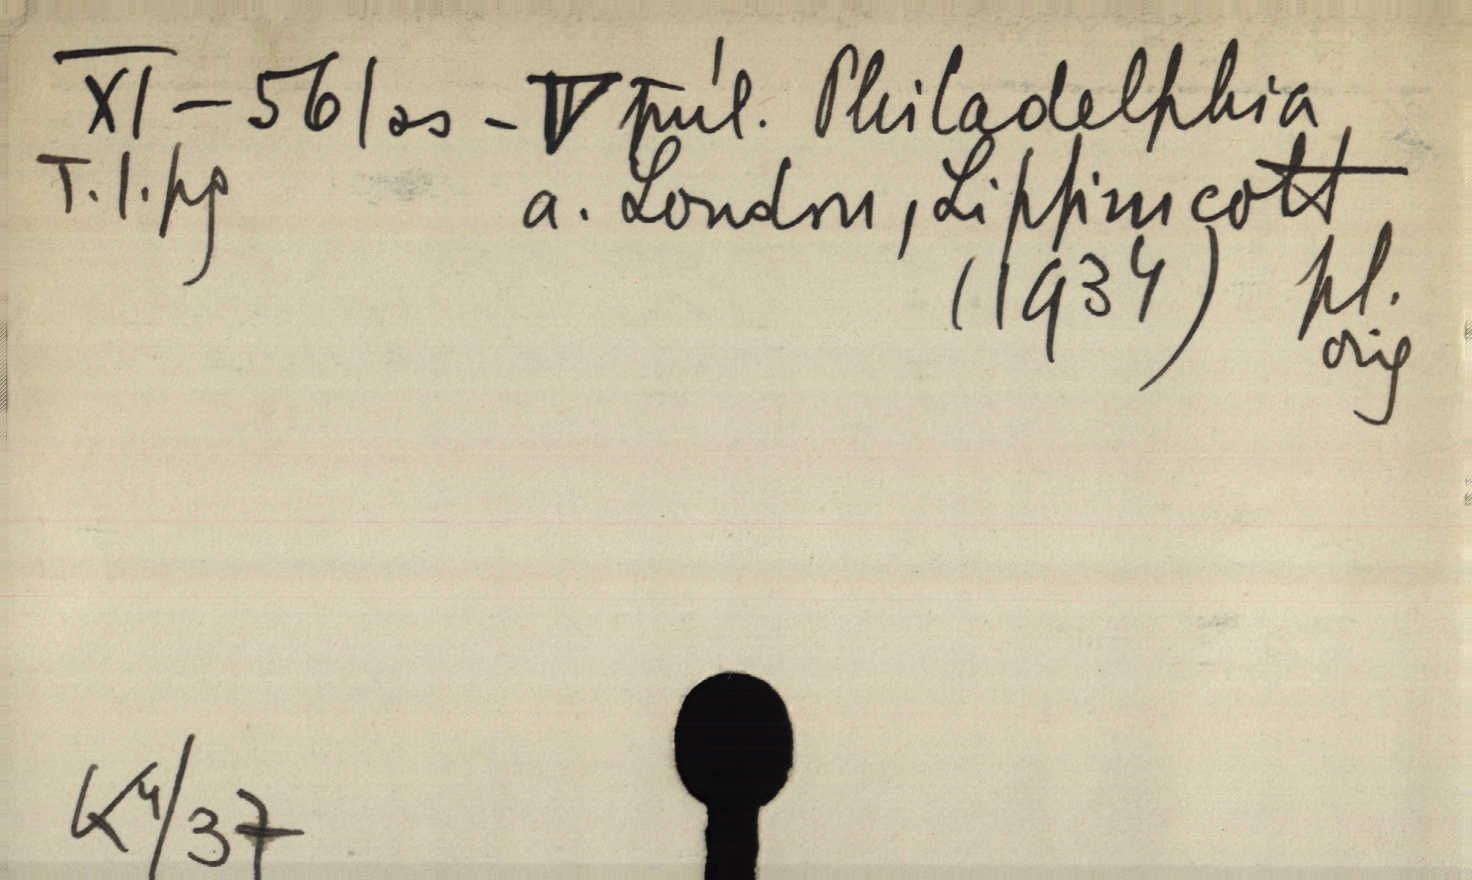 XI - 561 as - V půl. Philadelphia
T. l. pg a. London, Lippincott
(1934) pl.
orig
K4/37